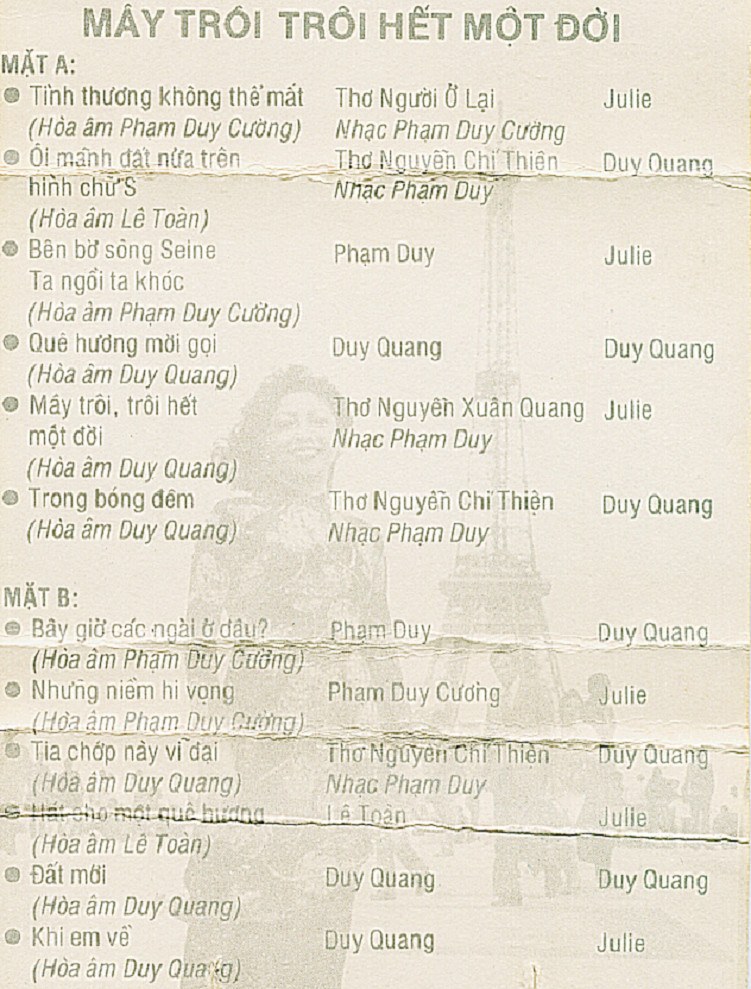 MÂY TRÔI TRÔI HẾT MỘT ĐỜI
MẶT A:
Tình thương không thể mất Thơ Người Ở Lại Julie
(Hòa âm Phạm Duy Cường) Nhạc Phạm Duy Cường
Ôi mảnh đất nửa trên Thơ Nguyễn Chí Thiện Duy Quang
hình chữ S Nhạc Phạm Duy
(Hòa âm Lê Toàn)
Bên bờ sông Seine Phạm Duy Julie
Ta ngồi ta khóc
(Hòa âm Phạm Duy Cường)
Quê hương mời gọi Duy Quang Duy Quang
(Hòa âm Duy Quang)
Mây trôi, trôi hết Thơ Nguyễn Xuân Quang Julie
một đời Nhạc Phạm Duy
(Hòa âm Duy Quang)
Trong bóng đêm Thơ Nguyễn Chí Thiện Duy Quang
(Hòa âm Duy Quang) Nhạc Phạm Duy
MẶT B:
Bây giờ các ngài ở đâu? Phạm Duy Duy Quang
(Hòa âm Phạm Duy Cường)
Những niềm hi vọng Phạm Duy Cường Julie
(Hòa âm Phạm Duy Cường)
Tia chớp này vĩ đại Thơ Nguyễn Chí Thiện Duy Quang
(Hòa âm Duy Quang) Nhạc Phạm Duy
Hát cho một quê hương Lê Toàn Julie
(Hòa âm Lê Toàn)
Đất mới Duy Quang Duy Quang
(Hòa âm Duy Quang)
Khi em về Duy Quang Julie
(Hòa âm Duy Quang)